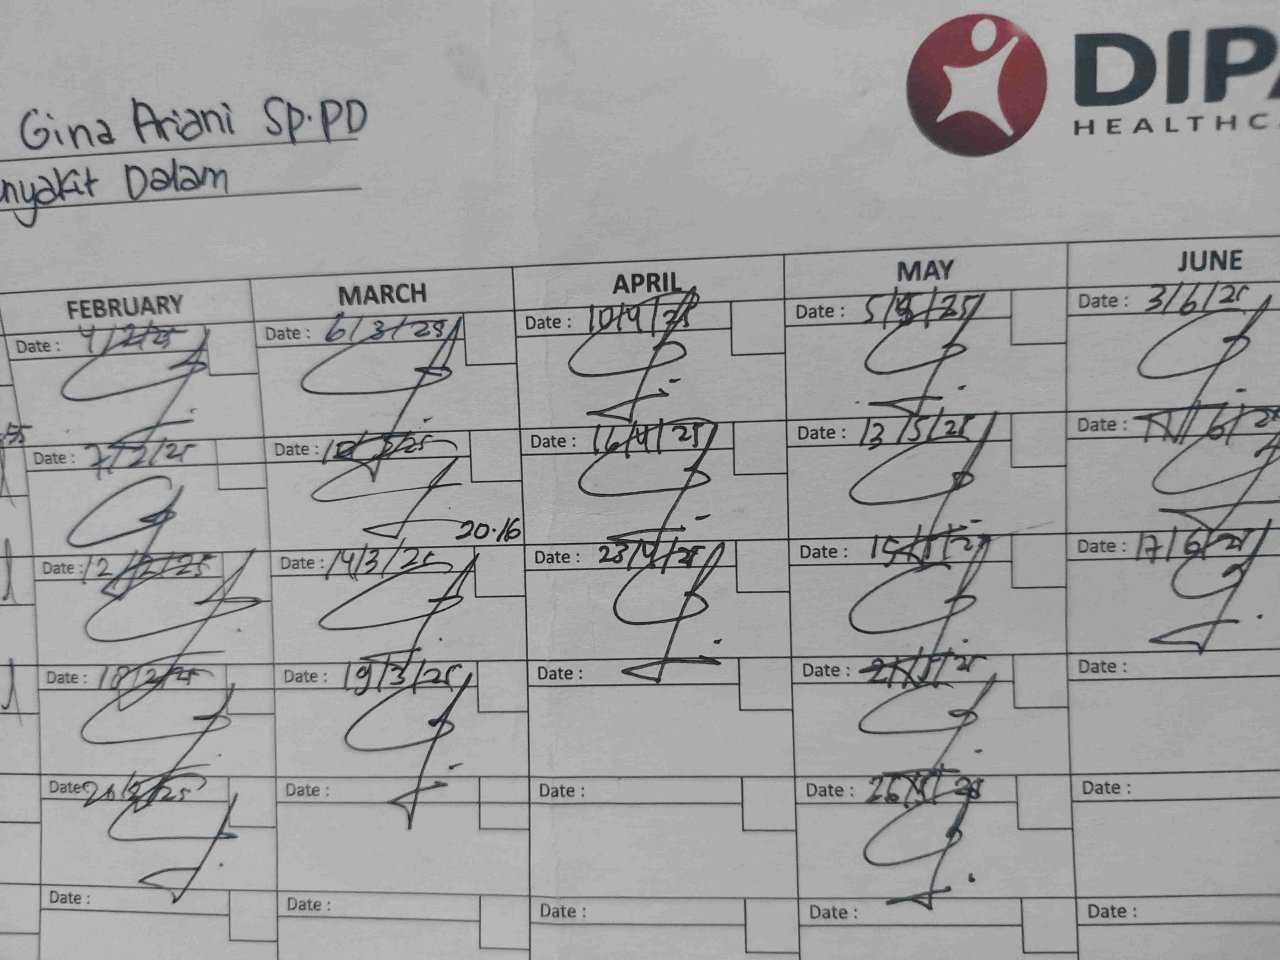 DIPA
HEALTHCA
Gina Ariani Sp.PD
nyakit Dalam
FEBRUARY MARCH APRIL MAY JUNE
Date : 4/2/25 Date : 6/3/25 Date : 10/4/25 Date : 5/5/25 Date : 3/6/25
Date : 7/2/25 Date : Date : 16/4/25 Date : 13/5/25 Date :
20.16
Date : 12/2/25 Date : 14/3/25 Date : 23/4/25 Date : 15/5/25 Date : 17/6/25
Date : 18/2/25 Date : 19/3/25 Date : Date : Date :
Date : 26/2/25 Date : Date : Date : 26/5/25 Date :
Date : Date : Date : Date : Date :